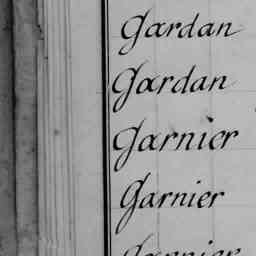 Gardan
Gardan
Garnier
Garnier
Garnier